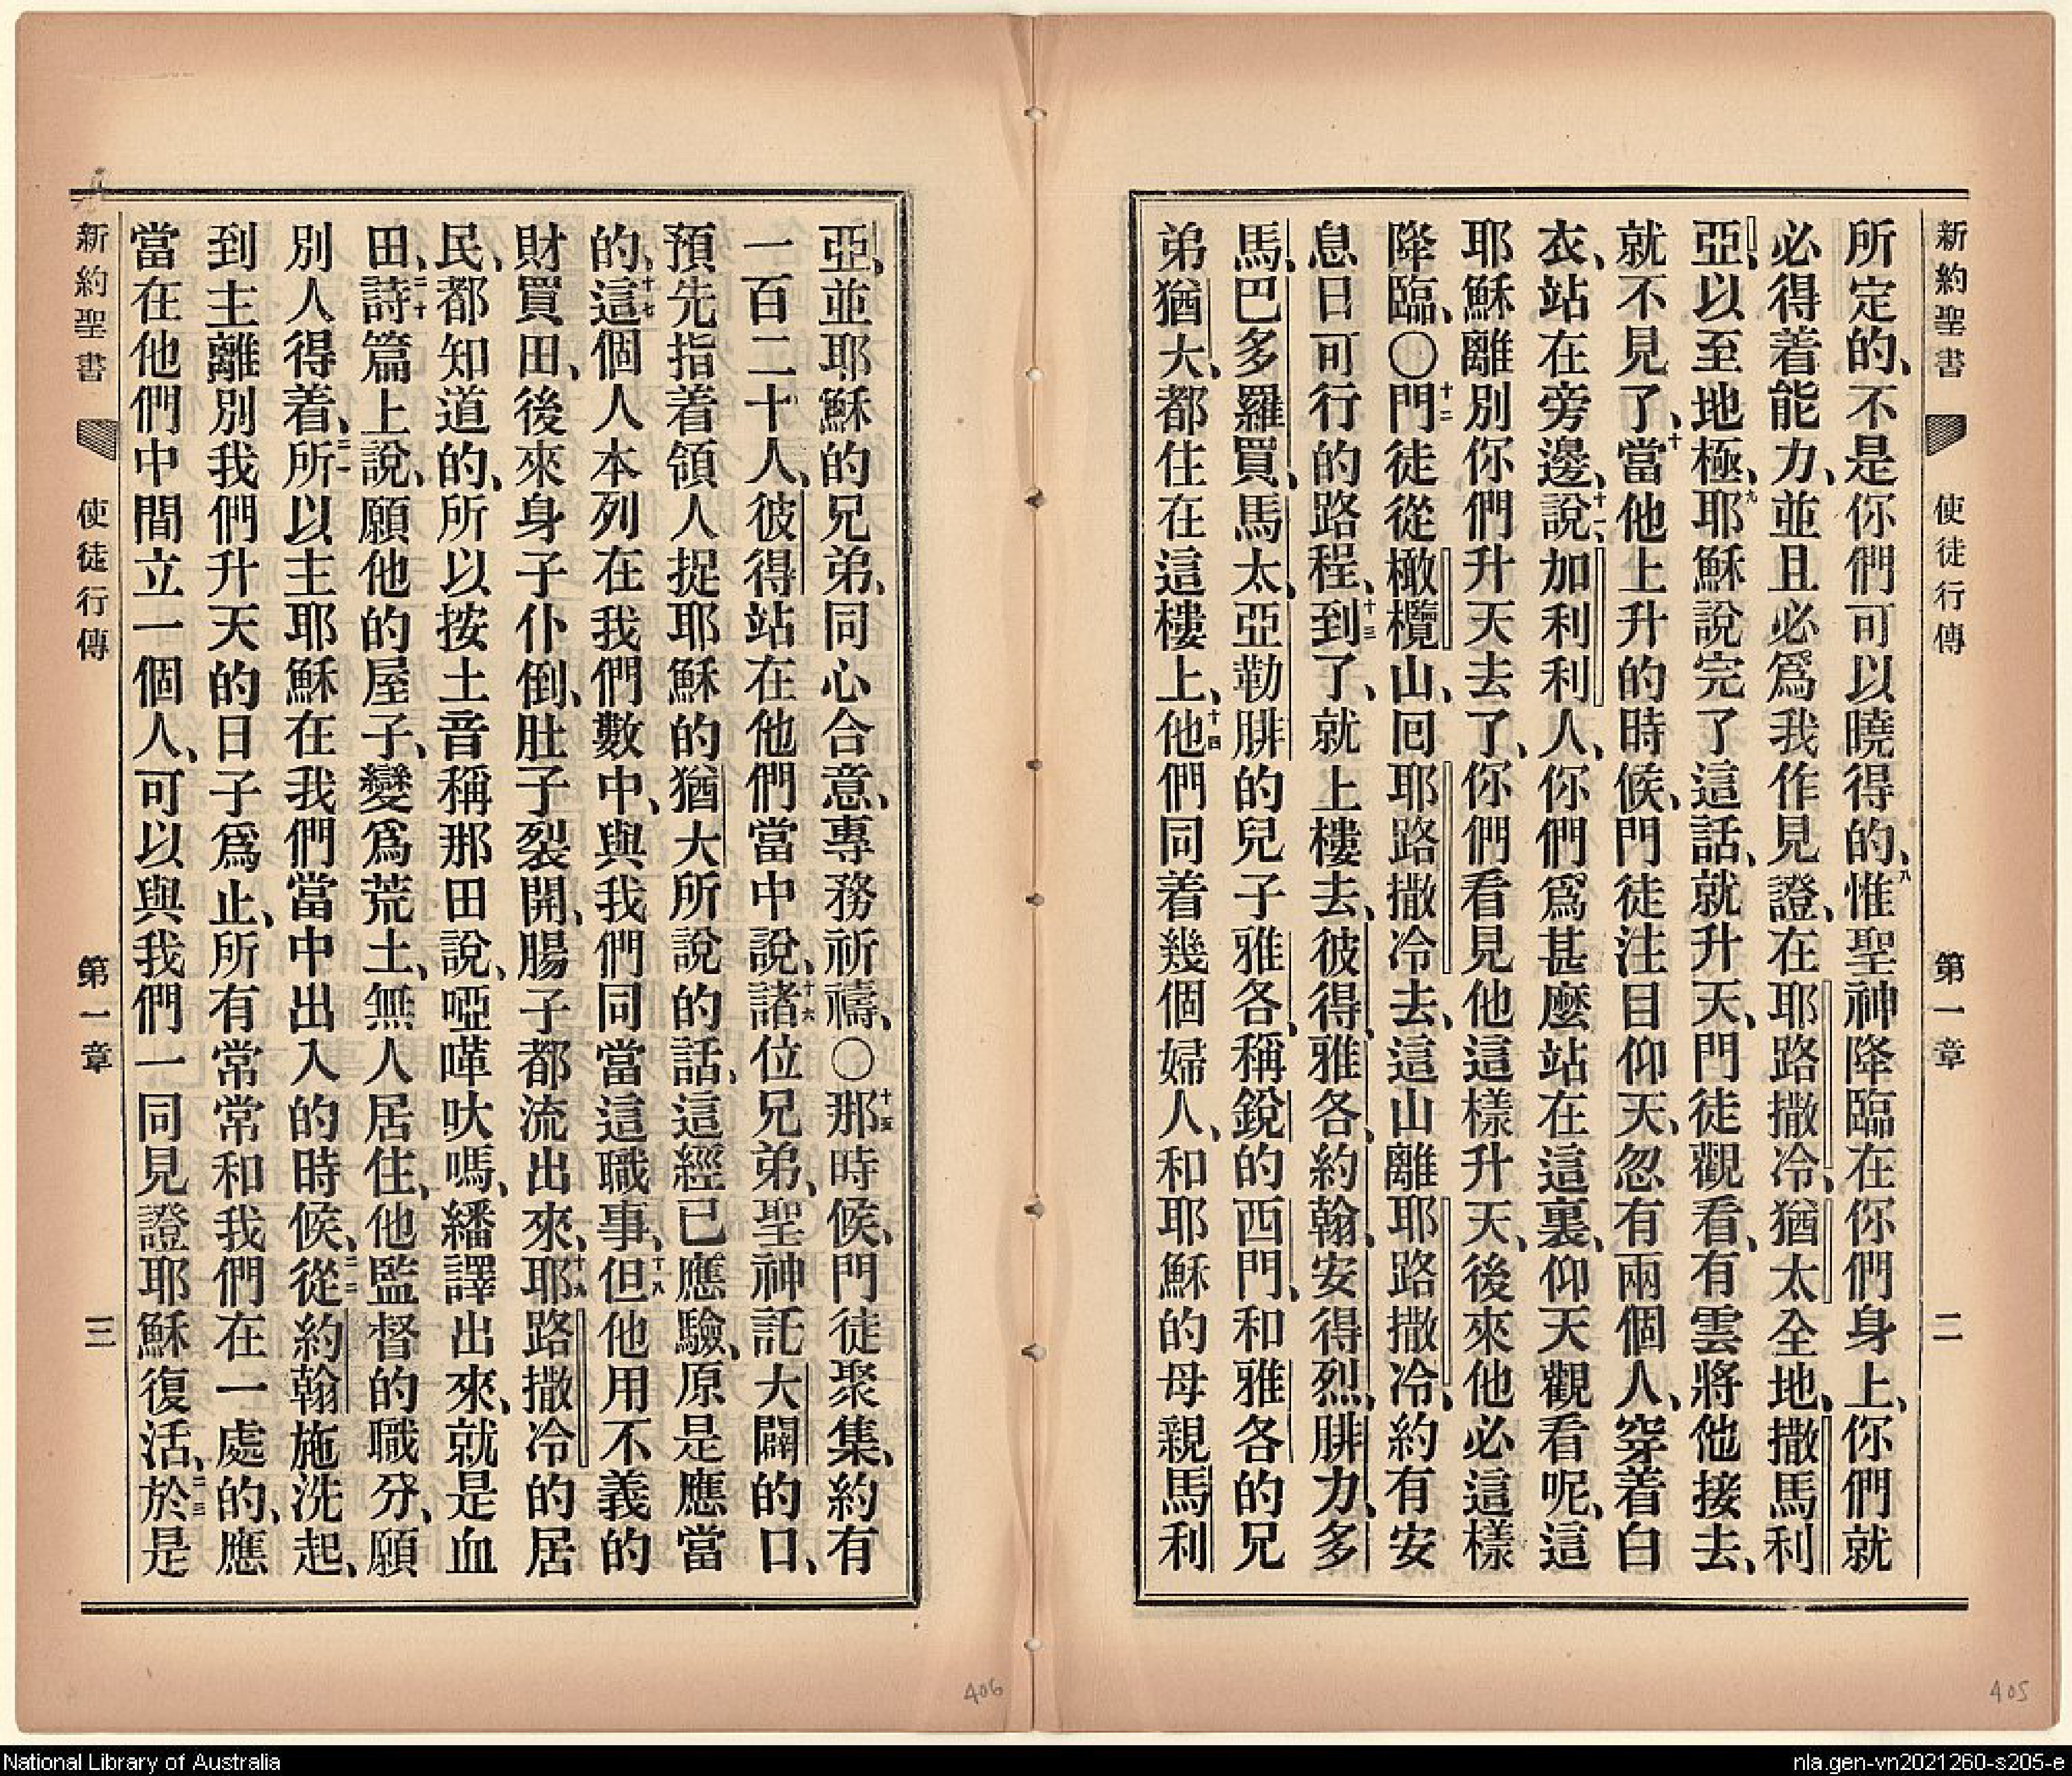 新約聖書 使徒行傳 第一章 二
所定的、不是你們可以曉得的、八惟聖神降臨在你們身上、你們就
必得着能力、並且必爲我作見證、在耶路撒冷、猶太全地、撒馬利
亞、以至地極、九耶穌說完了這話、就升天、門徒觀看、有雲將他接去、
就不見了、十當他上升的時候、門徒注目仰天、忽有兩個人、穿着白
衣、站在旁邊、十一說、加利利人、你們爲甚麼站在這裏、仰天觀看呢、這
耶穌離別你們升天去了、你們看見他這樣升天、後來他必這樣
降臨、〇十二門徒從橄欖山、囘耶路撒冷去、這山離耶路撒冷、約有安
息日可行的路程、十三到了、就上樓去、彼得、雅各、約翰、安得烈、腓力、多
馬、巴多羅買、馬太、亞勒腓的兒子雅各、稱銳的西門、和雅各的兄
弟猶大、都住在這樓上、十四他們同着幾個婦人、和耶穌的母親馬利
亞、並耶穌的兄弟、同心合意、專務祈禱、〇十五那時候、門徒聚集、約有
一百二十人、彼得站在他們當中說、十六諸位兄弟、聖神託大闢的口、
預先指着領人捉耶穌的猶大所說的話、這經已應驗、原是應當
的、十七這個人本列在我們數中、與我們同當這職事、十八但他用不義的
財買田、後來身子仆倒、肚子裂開、腸子都流出來、十九耶路撒冷的居
民、都知道的、所以按土音稱那田說、啞嘩吠嗎、繙譯出來、就是血
田、二十詩篇上說、願他的屋子、變爲荒土、無人居住、他監督的職分、願
別人得着、二一所以主耶穌在我們當中出入的時候、二二從約翰施洗起、
到主離別我們升天的日子爲止、所有常常和我們在一處的、應
當在他們中間立一個人、可以與我們一同見證耶穌復活、二三於是
新約聖書 使徒行傳 第一章 三
406
405
National Library of Australia
nla.gen-vn2021260-s205-e